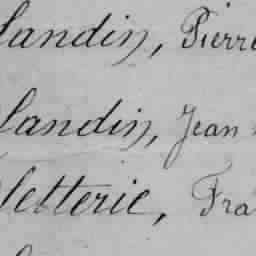 landin, Pierre
landin, Jean
letterie, Fra